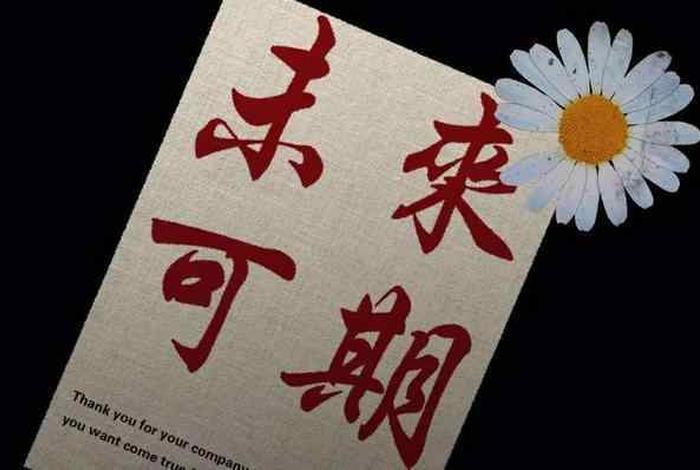 未来
可期
Thank you for your company
you want come true